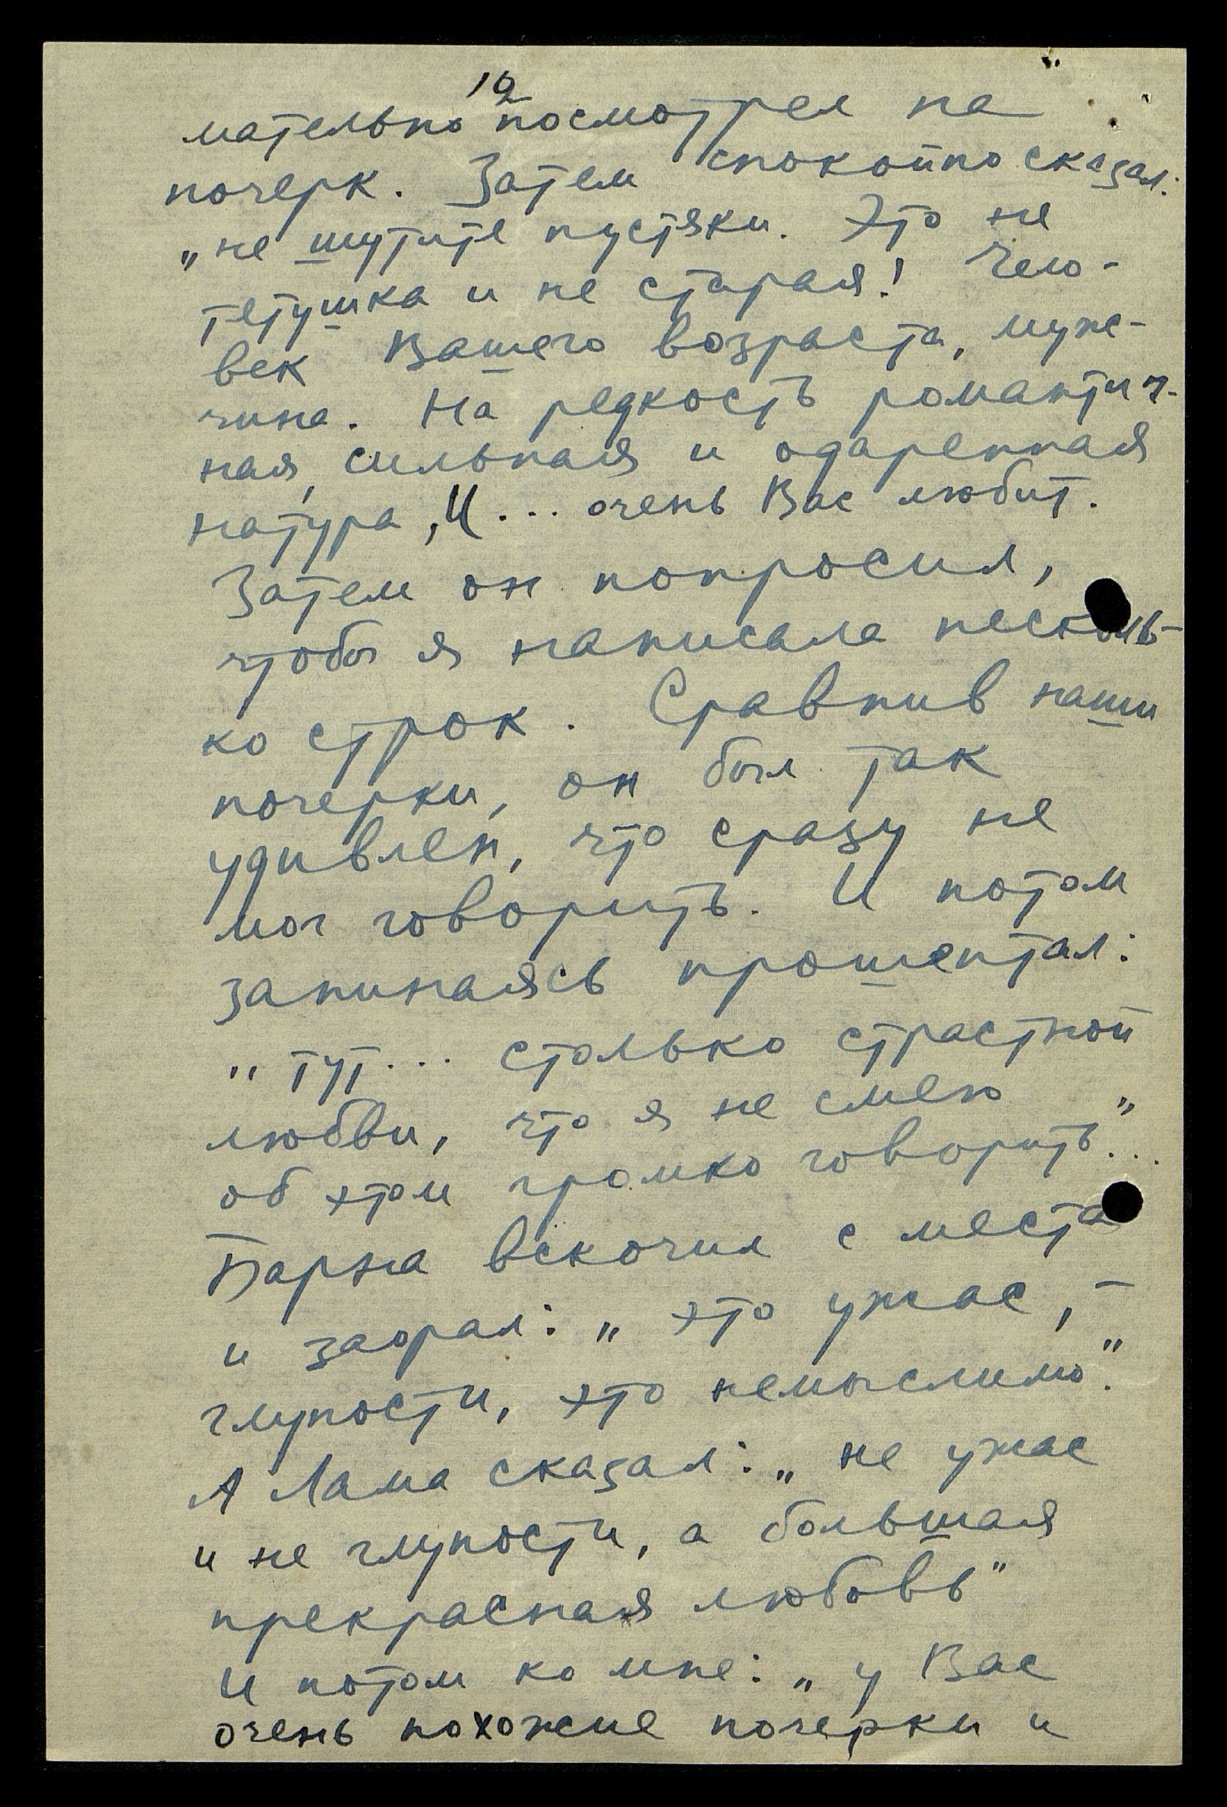 12
мательно посмотрел на
почерк. Затем спокойно сказал:
„не шутите пустяки. Это не
тетушка и не старая! Чело-
век Вашего возраста, муж-
чина. На редкость романтич-
ная, сильная и одаренная
натура, И... очень Вас любит.
Затем он попросил,
чтобы я написала несколь-
ко строк. Сравнив наши
почерки, он был так
удивлен, что сразу не
мог говорить. И потом
запинаясь прошептал:
„тут... столько страстной
любви, что я не смею
об этом громко говорить"...
Барна вскочил с места
и заорал: „это ужас, –
глупости, это немыслимо".
А Лама сказал: „не ужас
и не глупости, а большая
прекрасная любовь"
И потом ко мне: „у Вас
очень похожие почерки и